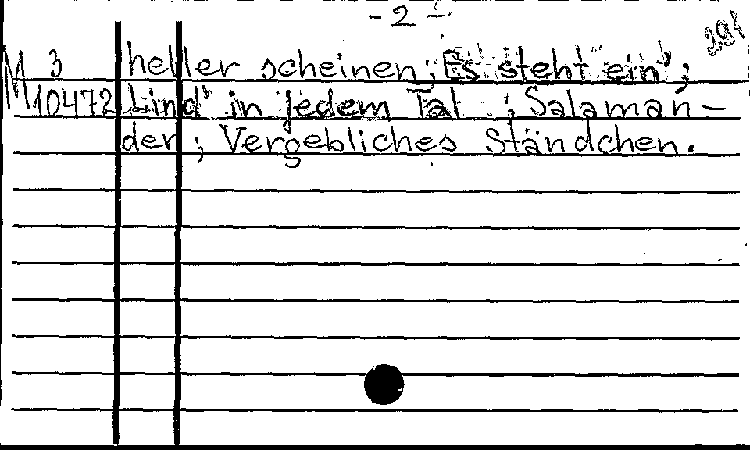 - 2 -
391
M 3 heller scheinen; "Es steht ein";
10472 Lind' in jedem Tal ; Salaman-
der ; Vergebliches Ständchen.